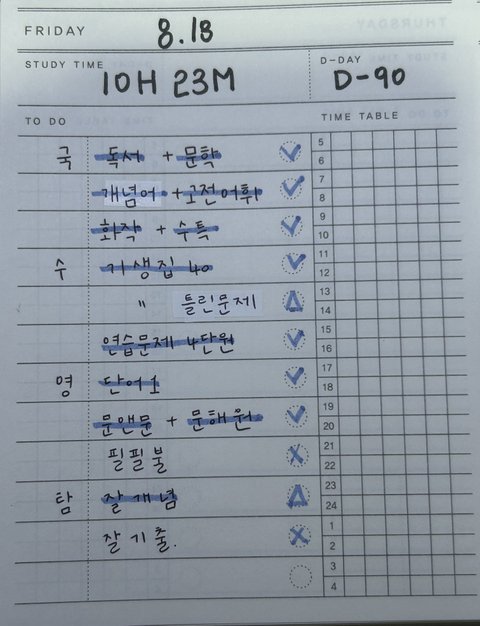 FRIDAY 8.18
STUDY TIME 10H 23M
D-DAY D-90
TO DO
TIME TABLE
국 독서 + 문학
개념어 + 고전어휘
화작 + 수특
수 기생집 40
" 틀린문제
연습문제 4단원
영 단어 1
문앤문 + 문해원
필필불
탐 잘개념
잘기출.
5
6
7
8
9
10
11
12
13
14
15
16
17
18
19
20
21
22
23
24
1
2
3
4